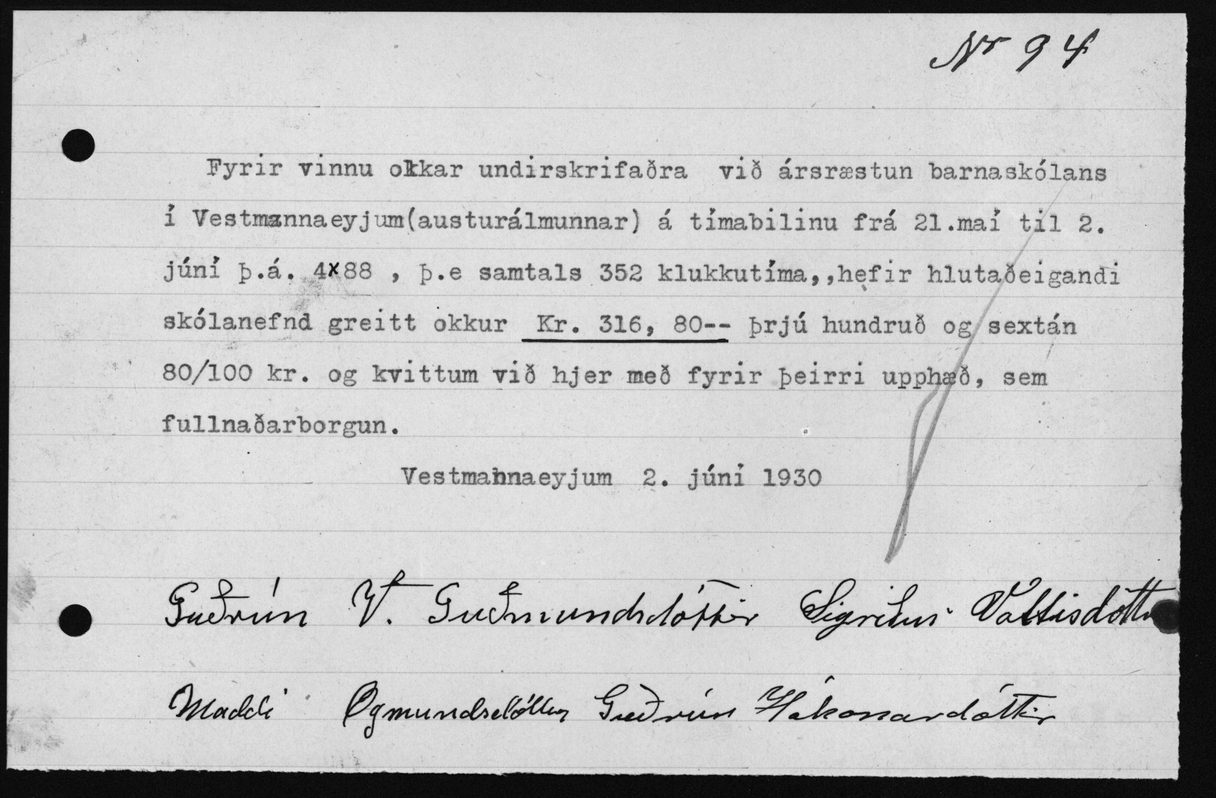 Nr 94
Fyrir vinnu okkar undirskrifaðra við ársræstun barnaskólans
í Vestmannaeyjum(austurálmunnar) á tímabilinu frá 21.maí til 2.
júní þ.á. 4x88 , þ.e samtals 352 klukkutíma,,hefir hlutaðeigandi
skólanefnd greitt okkur Kr. 316, 80-- þrjú hundruð og sextán
80/100 kr. og kvittum við hjer með fyrir þeirri upphæð, sem
fullnaðarborgun.
Vestmannaeyjum 2. júní 1930
Guðrún V. Guðmundsdóttir Sigríður
Ögmundsdóttir Guðrún Hákonardóttir